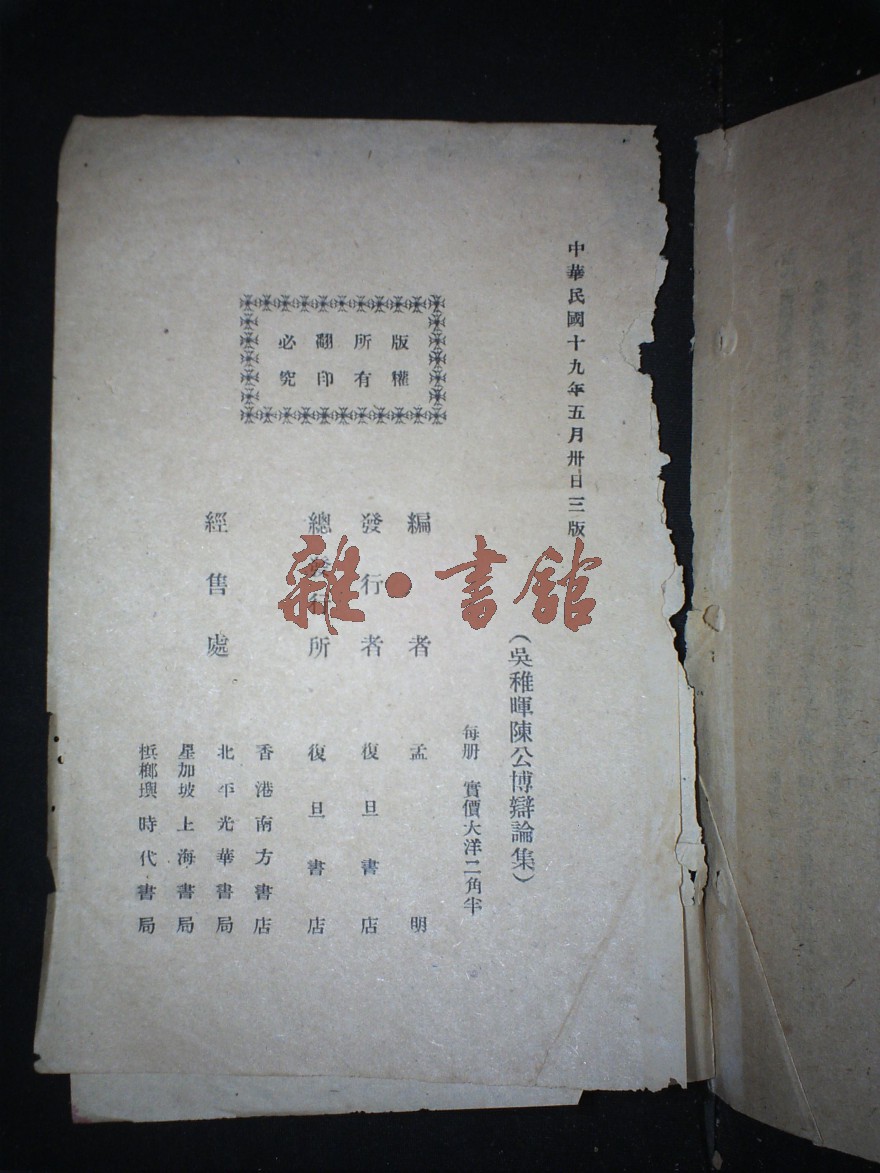 中華民國十九年五月卅日三版
（吳稚暉陳公博辯論集）
每册　實價大洋二角半
版權
所有
翻印
必究
編者　孟明
發行者　復旦書店
總發行所　復旦書店
經售處
香港南方書店
北平光華書局
星加坡上海書局
梹榔璵時代書局
雜·書館